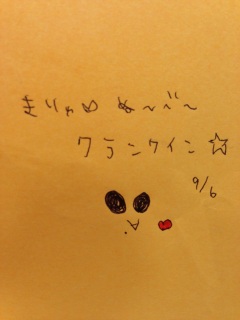 きりゅめ ぬ〜べ〜
クランクイン☆
9/6